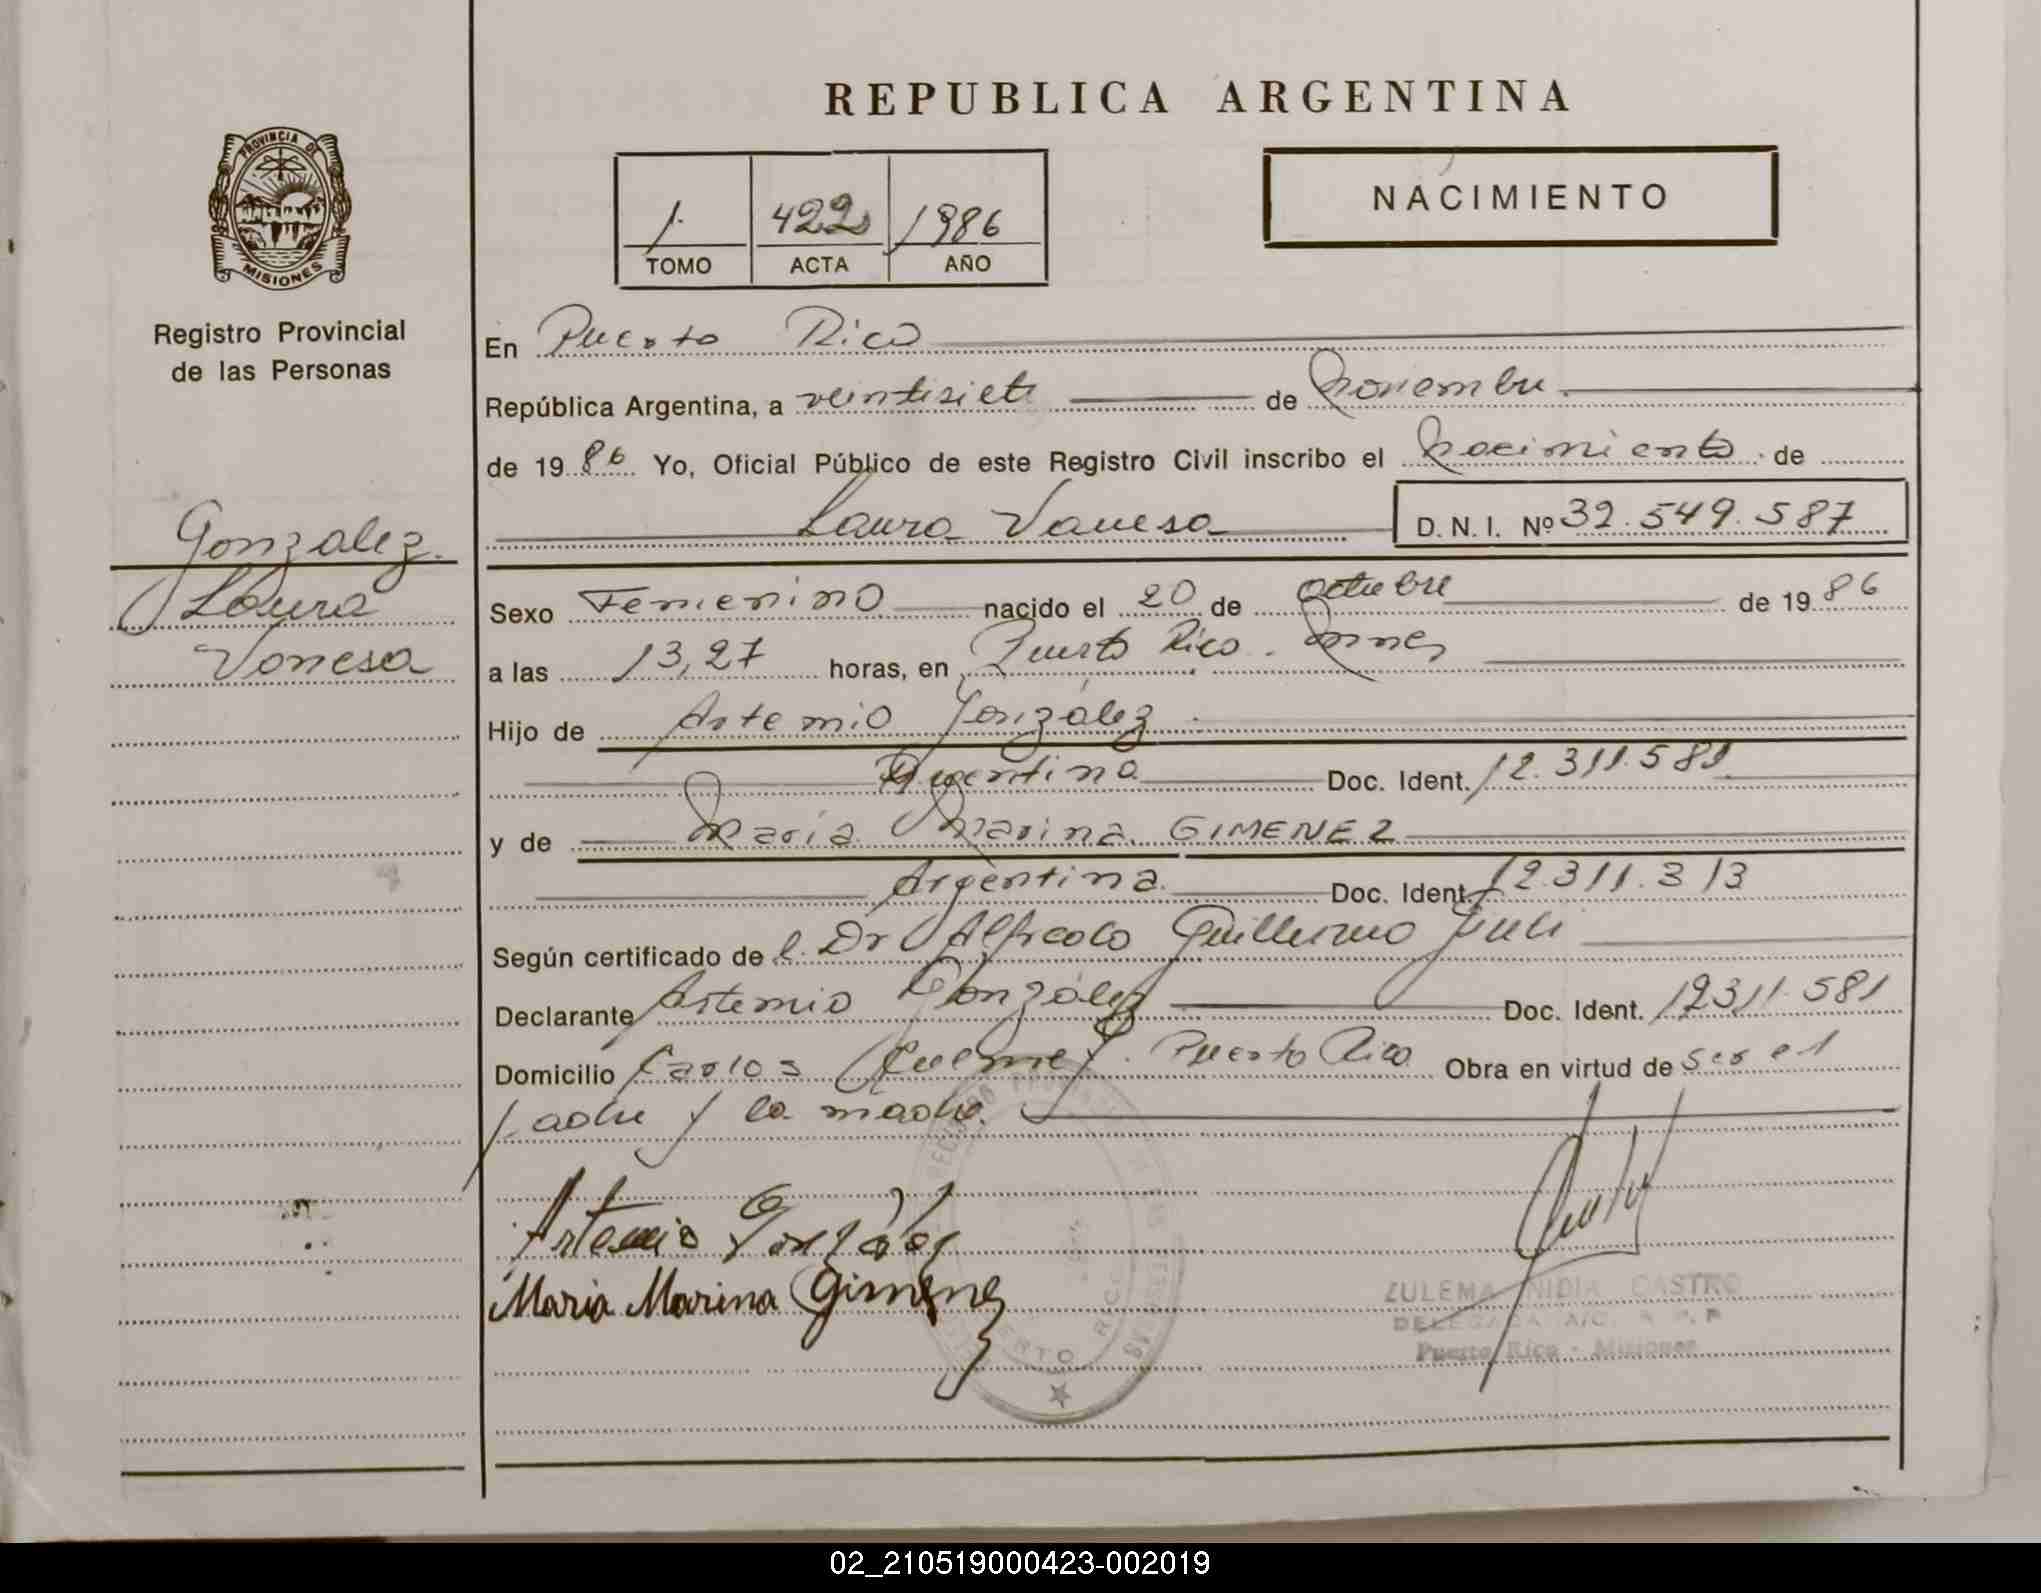 REPUBLICA ARGENTINA
PROVINCIA DE
MISIONES
Registro Provincial
de las Personas
1. 422 1986
TOMO ACTA AÑO
NACIMIENTO
En Puerto Rico
República Argentina, a veintisiete de noviembre.
de 1986. Yo, Oficial Público de este Registro Civil inscribo el nacimiento de
Laura Vanesa D.N.I. Nº 32.549.587
Gonzalez.
Laura
Vanesa
Sexo Femenino nacido el 20 de octubre de 1986
a las 13,27 horas, en Puerto Rico. Mnes
Hijo de Artemio González.
Argentina Doc. Ident. 12.311.581
y de María Marina GIMENEZ
Argentina. Doc. Ident. 12.311.313
Según certificado de l. Dr Alfredo Guillermo
Declarante Artemio González Doc. Ident. 12311.581
Domicilio Carlos Culmey. Puerto Rico Obra en virtud de ser el
padre y la madre.
Artemio González
Maria Marina Gimenez
ZULEMA NIDIA CASTRO
DELEGADA A/C. R. P. P.
Puerto Rico - Misiones
02_210519000423-002019